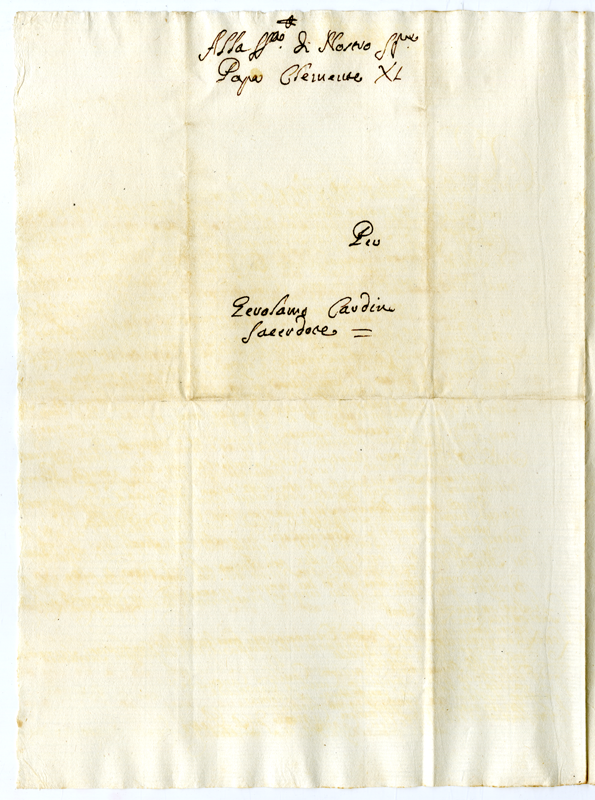 Alla S.tà di Nostro Sig.re
Papa Clemente XI
Per
Gerolamo Cardin
Sacerdote =